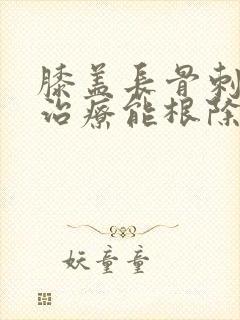 膝盖長骨刺
治療能根除
妖童童